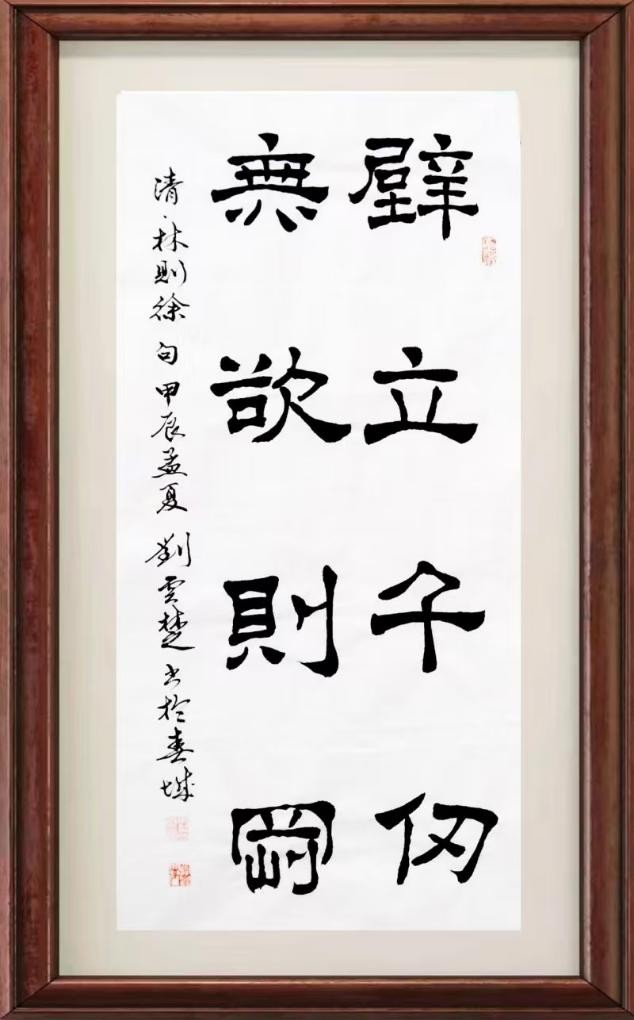 壁立千仞
無欲則罡
清·林則徐句甲辰孟夏劉雲楚书於春城